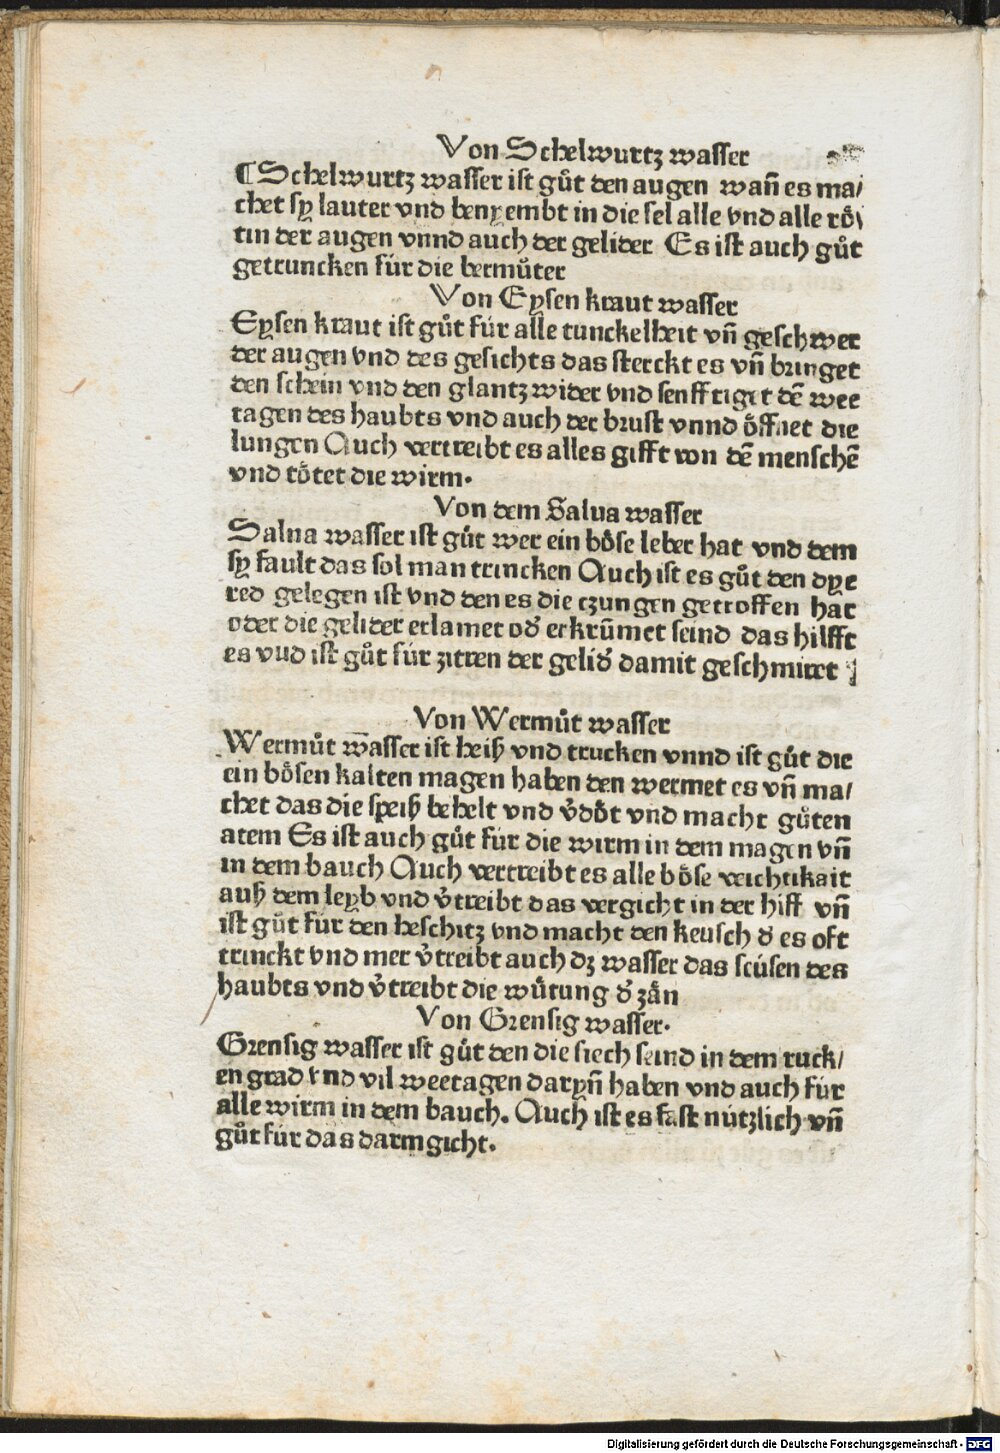 Von Schelwurtz wasser
¶ Schelwurtz wasser ist gůt den augen wañ es ma/
chet sy lauter vnd benÿembt in die fel alle vnd alle rö\
tin der augen vnnd auch der gelider Es ist auch gůt
getruncken für die bermůter
Von Eysen kraut wasser
Eysen kraut ist gůt für alle tunckelheit vñ geschwer
der augen vnd des gesichts das sterckt es vñ bringet
den schein vnd den glantz wider vnd senfftiget dē wee
tagen des haubts vnd auch der brust vnnd öffnet die
lungen Auch vertreibt es alles gifft von dē menschē
vnd tötet die wirm.
Von dem Salua wasser
Salua wasser ist gůt wer ein böse leber hat vnd dem
sy fault das sol man trincken Auch ist es gůt den dye
red gelegen ist vnd den es die czungen getroffen hat
oder die gelider erlamet oď erkrümet seind das hilfft
es vnd ist gůt für zitren der geliď damit geschmiret
Von Wermůt wasser
Wermůt wasser ist heiß vnd trucken vnnd ist gůt die
ein bösen kalten magen haben den wermet es vñ ma/
chet das die speiß behelt vnd v̓döt vnd macht gůten
atem Es ist auch gůt für die wirm in dem magen vñ
in dem bauch Auch vertreibt es alle böse veichtikait
auß dem leyb vnd v̓treibt das vergicht in der hiff vñ
ist gůt für den heschitz vnd macht den keusch ď es oft
trinckt vnd mer v̓treibt auch dz wasser das seüsen des
haubts vnd v̓treibt die wütung ď zän
Von Grensig wasser.
Grensig wasser ist gůt den die siech seind in dem ruck/
en grad vnd vil weetagen darÿñ haben vnd auch für
alle wirm in dem bauch. Auch ist es fast nützlich vñ
gůt für das darmgicht.
Digitalisierung gefördert durch die Deutsche Forschungsgemeinschaft - DFG